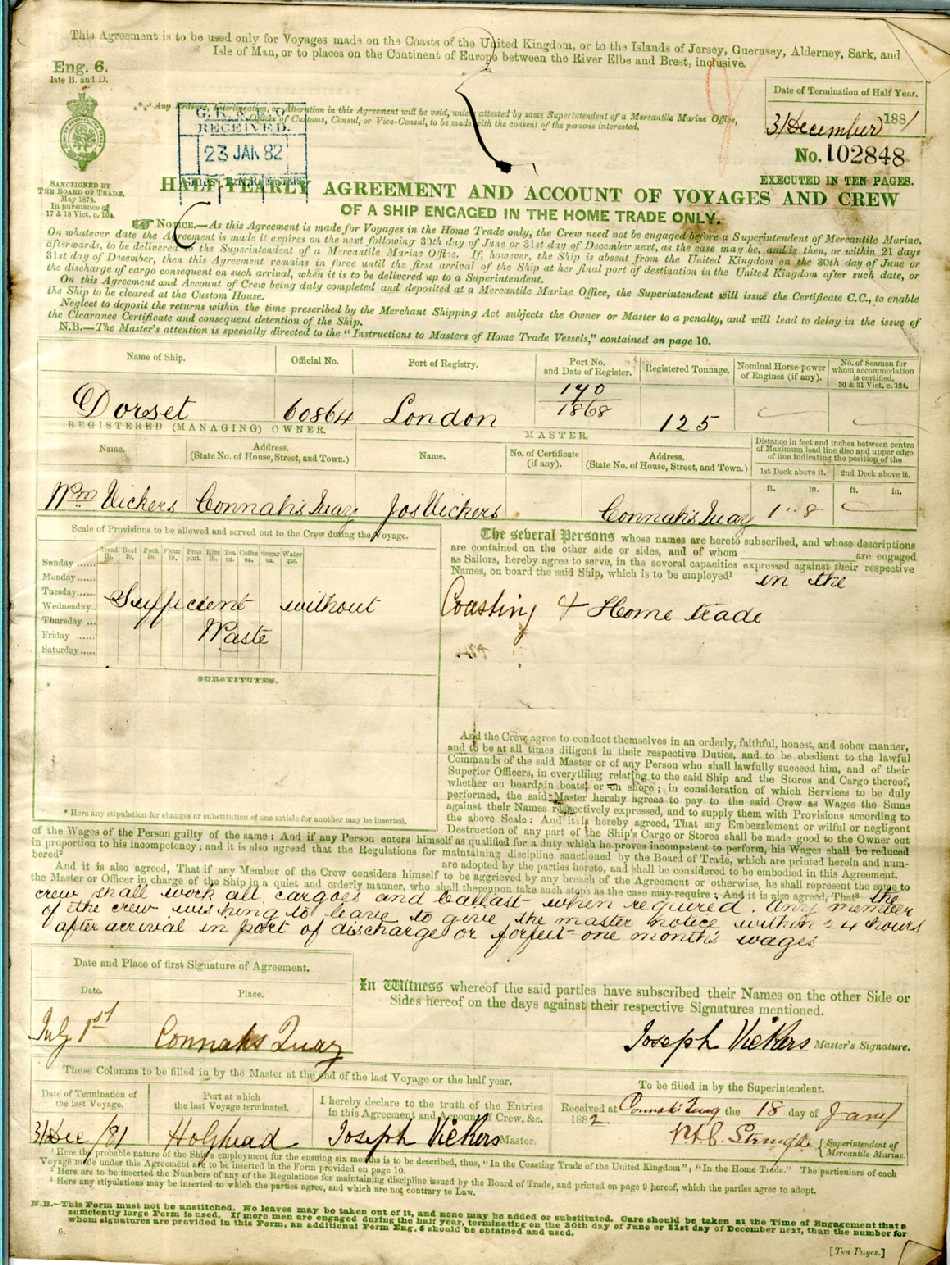 This Agreement is to be used only for Voyages made on the Coasts of the United Kingdom, or to the Islands of Jersey, Guernsey, Alderney, Sark, and
Isle of Man, or to places on the Continent of Europe between the River Elbe and Brest, inclusive.
Eng. 6.
late B. and D.
Date of Termination of Half Year.
31 December 1881
Any Erasure, Interlineation, or Alteration in this Agreement will be void, unless attested by some Superintendent of a Mercantile Marine Office,
Officer of Customs, Consul, or Vice-Consul, to be made with the consent of the persons interested.
RECEIVED.
23 JAN. 82
No. 102848
SANCTIONED BY
THE BOARD OF TRADE.
May 1874.
In pursuance of
17 & 18 Vict. c. 104.
EXECUTED IN TEN PAGES.
HALF-YEARLY AGREEMENT AND ACCOUNT OF VOYAGES AND CREW
OF A SHIP ENGAGED IN THE HOME TRADE ONLY.
NOTICE.—As this Agreement is made for Voyages in the Home Trade only, the Crew need not be engaged before a Superintendent of Mercantile Marine.
On whatever date the Agreement is made it expires on the next following 30th day of June or 31st day of December next, as the case may be, and is then, or within 21 days
afterwards, to be delivered to the Superintendent of a Mercantile Marine Office. If, however, the Ship is absent from the United Kingdom on the 30th day of June or
31st day of December, then this Agreement remains in force until the first arrival of the Ship at her final port of destination in the United Kingdom after such date, or
the discharge of cargo consequent on such arrival, when it is to be delivered up to a Superintendent.
On this Agreement and Account of Crew being duly completed and deposited at a Mercantile Marine Office, the Superintendent will issue the Certificate C.C., to enable
the Ship to be cleared at the Custom House.
Neglect to deposit the returns within the time prescribed by the Merchant Shipping Act subjects the Owner or Master to a penalty, and will lead to delay in the issue of
the Clearance Certificate and consequent detention of the Ship.
N.B.—The Master's attention is specially directed to the "Instructions to Masters of Home Trade Vessels," contained on page 10.
Name of Ship. Official No. Port of Registry. Port No. and Date of Register. Registered Tonnage. Nominal Horse-power of Engines (if any). No. of Seamen for whom accommodation is certified, 30 & 31 Vict. c. 124.
Dorset 60864 London 140 1868 125
REGISTERED (MANAGING) OWNER. MASTER.
Name. Address. (State No. of House, Street, and Town.) Name. No. of Certificate (if any). Address. (State No. of House, Street, and Town.)
Distance in feet and inches between centre of Maximum load line disc and upper edge of line indicating the position of the
1st Deck above it. 2nd Deck above it.
ft. in. ft. in.
Wm Vickers Connahs Quay Jos Vickers Connahs Quay 1 " 8
Scale of Provisions to be allowed and served out to the Crew during the Voyage.
Bread lb. Beef lb. Pork lb. Flour lb. Peas pint. Rice lb. Tea oz. Coffee oz. Sugar oz. Water qts.
Sunday
Monday
Tuesday
Wednesday
Thursday
Friday
Saturday
Sufficient without
Waste
SUBSTITUTES.
* Here any stipulation for changes or substitution of one article for another may be inserted.
The several Persons whose names are hereto subscribed, and whose descriptions
are contained on the other side or sides, and of whom are engaged
as Sailors, hereby agree to serve, in the several capacities expressed against their respective
Names, on board the said Ship, which is to be employed¹ in the
Coasting & Home trade
And the Crew agree to conduct themselves in an orderly, faithful, honest, and sober manner,
and to be at all times diligent in their respective Duties, and to be obedient to the lawful
Commands of the said Master or of any Person who shall lawfully succeed him, and of their
Superior Officers, in everything relating to the said Ship and the Stores and Cargo thereof,
whether on board, in boats, or on shore; in consideration of which Services to be duly
performed, the said Master hereby agrees to pay to the said Crew as Wages the Sums
against their Names respectively expressed, and to supply them with Provisions according to
the above Scale: And it is hereby agreed, That any Embezzlement or wilful or negligent
Destruction of any part of the Ship's Cargo or Stores shall be made good to the Owner out
of the Wages of the Person guilty of the same; And if any Person enters himself as qualified for a duty which he proves incompetent to perform, his Wages shall be reduced
in proportion to his incompetency; and it is also agreed that the Regulations for maintaining discipline sanctioned by the Board of Trade, which are printed herein and num-
bered² are adopted by the parties hereto, and shall be considered to be embodied in this Agreement.
And it is also agreed, That if any Member of the Crew considers himself to be aggrieved by any breach of the Agreement or otherwise, he shall represent the same to
the Master or Officer in charge of the Ship in a quiet and orderly manner, who shall thereupon take such steps as the case may require; And it is also agreed, That³ the
crew shall work all cargoes and ballast when required. Any member
of the crew wishing to leave to give the master notice within 24 hours
after arrival in port of discharge or forfeit one month's wages
Date and Place of first Signature of Agreement.
Date. Place.
July 1st Connahs Quay
In Witness whereof the said parties have subscribed their Names on the other Side or
Sides hereof on the days against their respective Signatures mentioned.
Joseph Vickers Master's Signature.
These Columns to be filled in by the Master at the end of the last Voyage or the half year.
Date of Termination of the last Voyage. Port at which the last Voyage terminated.
I hereby declare to the truth of the Entries in this Agreement and Account of Crew, &c.
31 Dec /81 Holyhead Joseph Vickers Master.
To be filled in by the Superintendent.
Received at Connahs Quay the 18 day of Jany
1882
Superintendent of Mercantile Marine.
¹ Here the probable nature of the Ship's employment for the ensuing six months is to be described, thus, "In the Coasting Trade of the United Kingdom"; "In the Home Trade." The particulars of each
Voyage made under this Agreement are to be inserted in the Form provided on page 10.
² Here are to be inserted the Numbers of any of the Regulations for maintaining discipline issued by the Board of Trade, and printed on page 9 hereof, which the parties agree to adopt.
³ Here any stipulations may be inserted to which the parties agree, and which are not contrary to Law.
N.B.—This Form must not be unstitched. No leaves may be taken out of it, and none may be added or substituted. Care should be taken at the Time of Engagement that a
sufficiently large Form is used. If more men are engaged during the half year, terminating on the 30th day of June or 31st day of December next, than the number for
whom signatures are provided in this Form, an additional Form Eng. 6 should be obtained and used.
6.
[Ten Pages.]